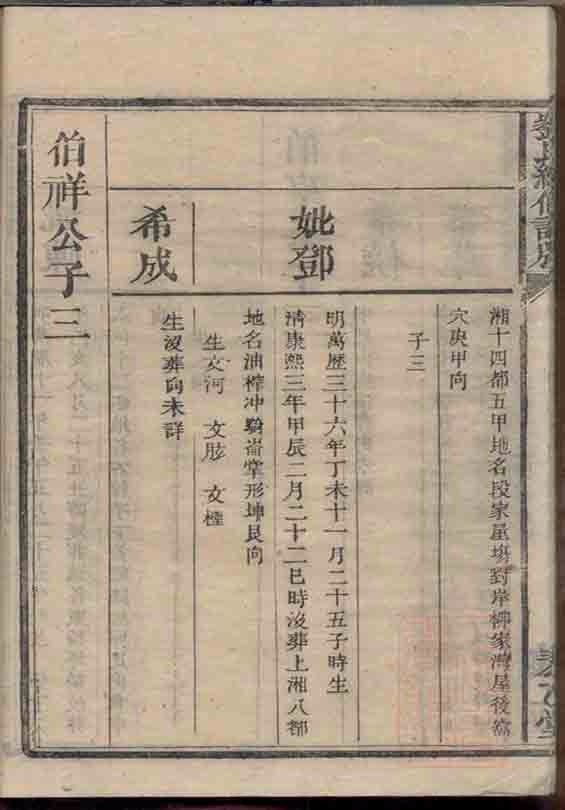 湘十四都五甲地名段家星塝對岸柳家灣屋後
穴庚甲向
子三
妣鄧
明萬歷三十六年丁未十一月二十五子時生
清康熙三年甲辰二月二十二巳時沒葬上湘八都
地名油榨冲 形坤艮向
生文河 文 文
希成
生沒葬向未詳
伯祥公子三